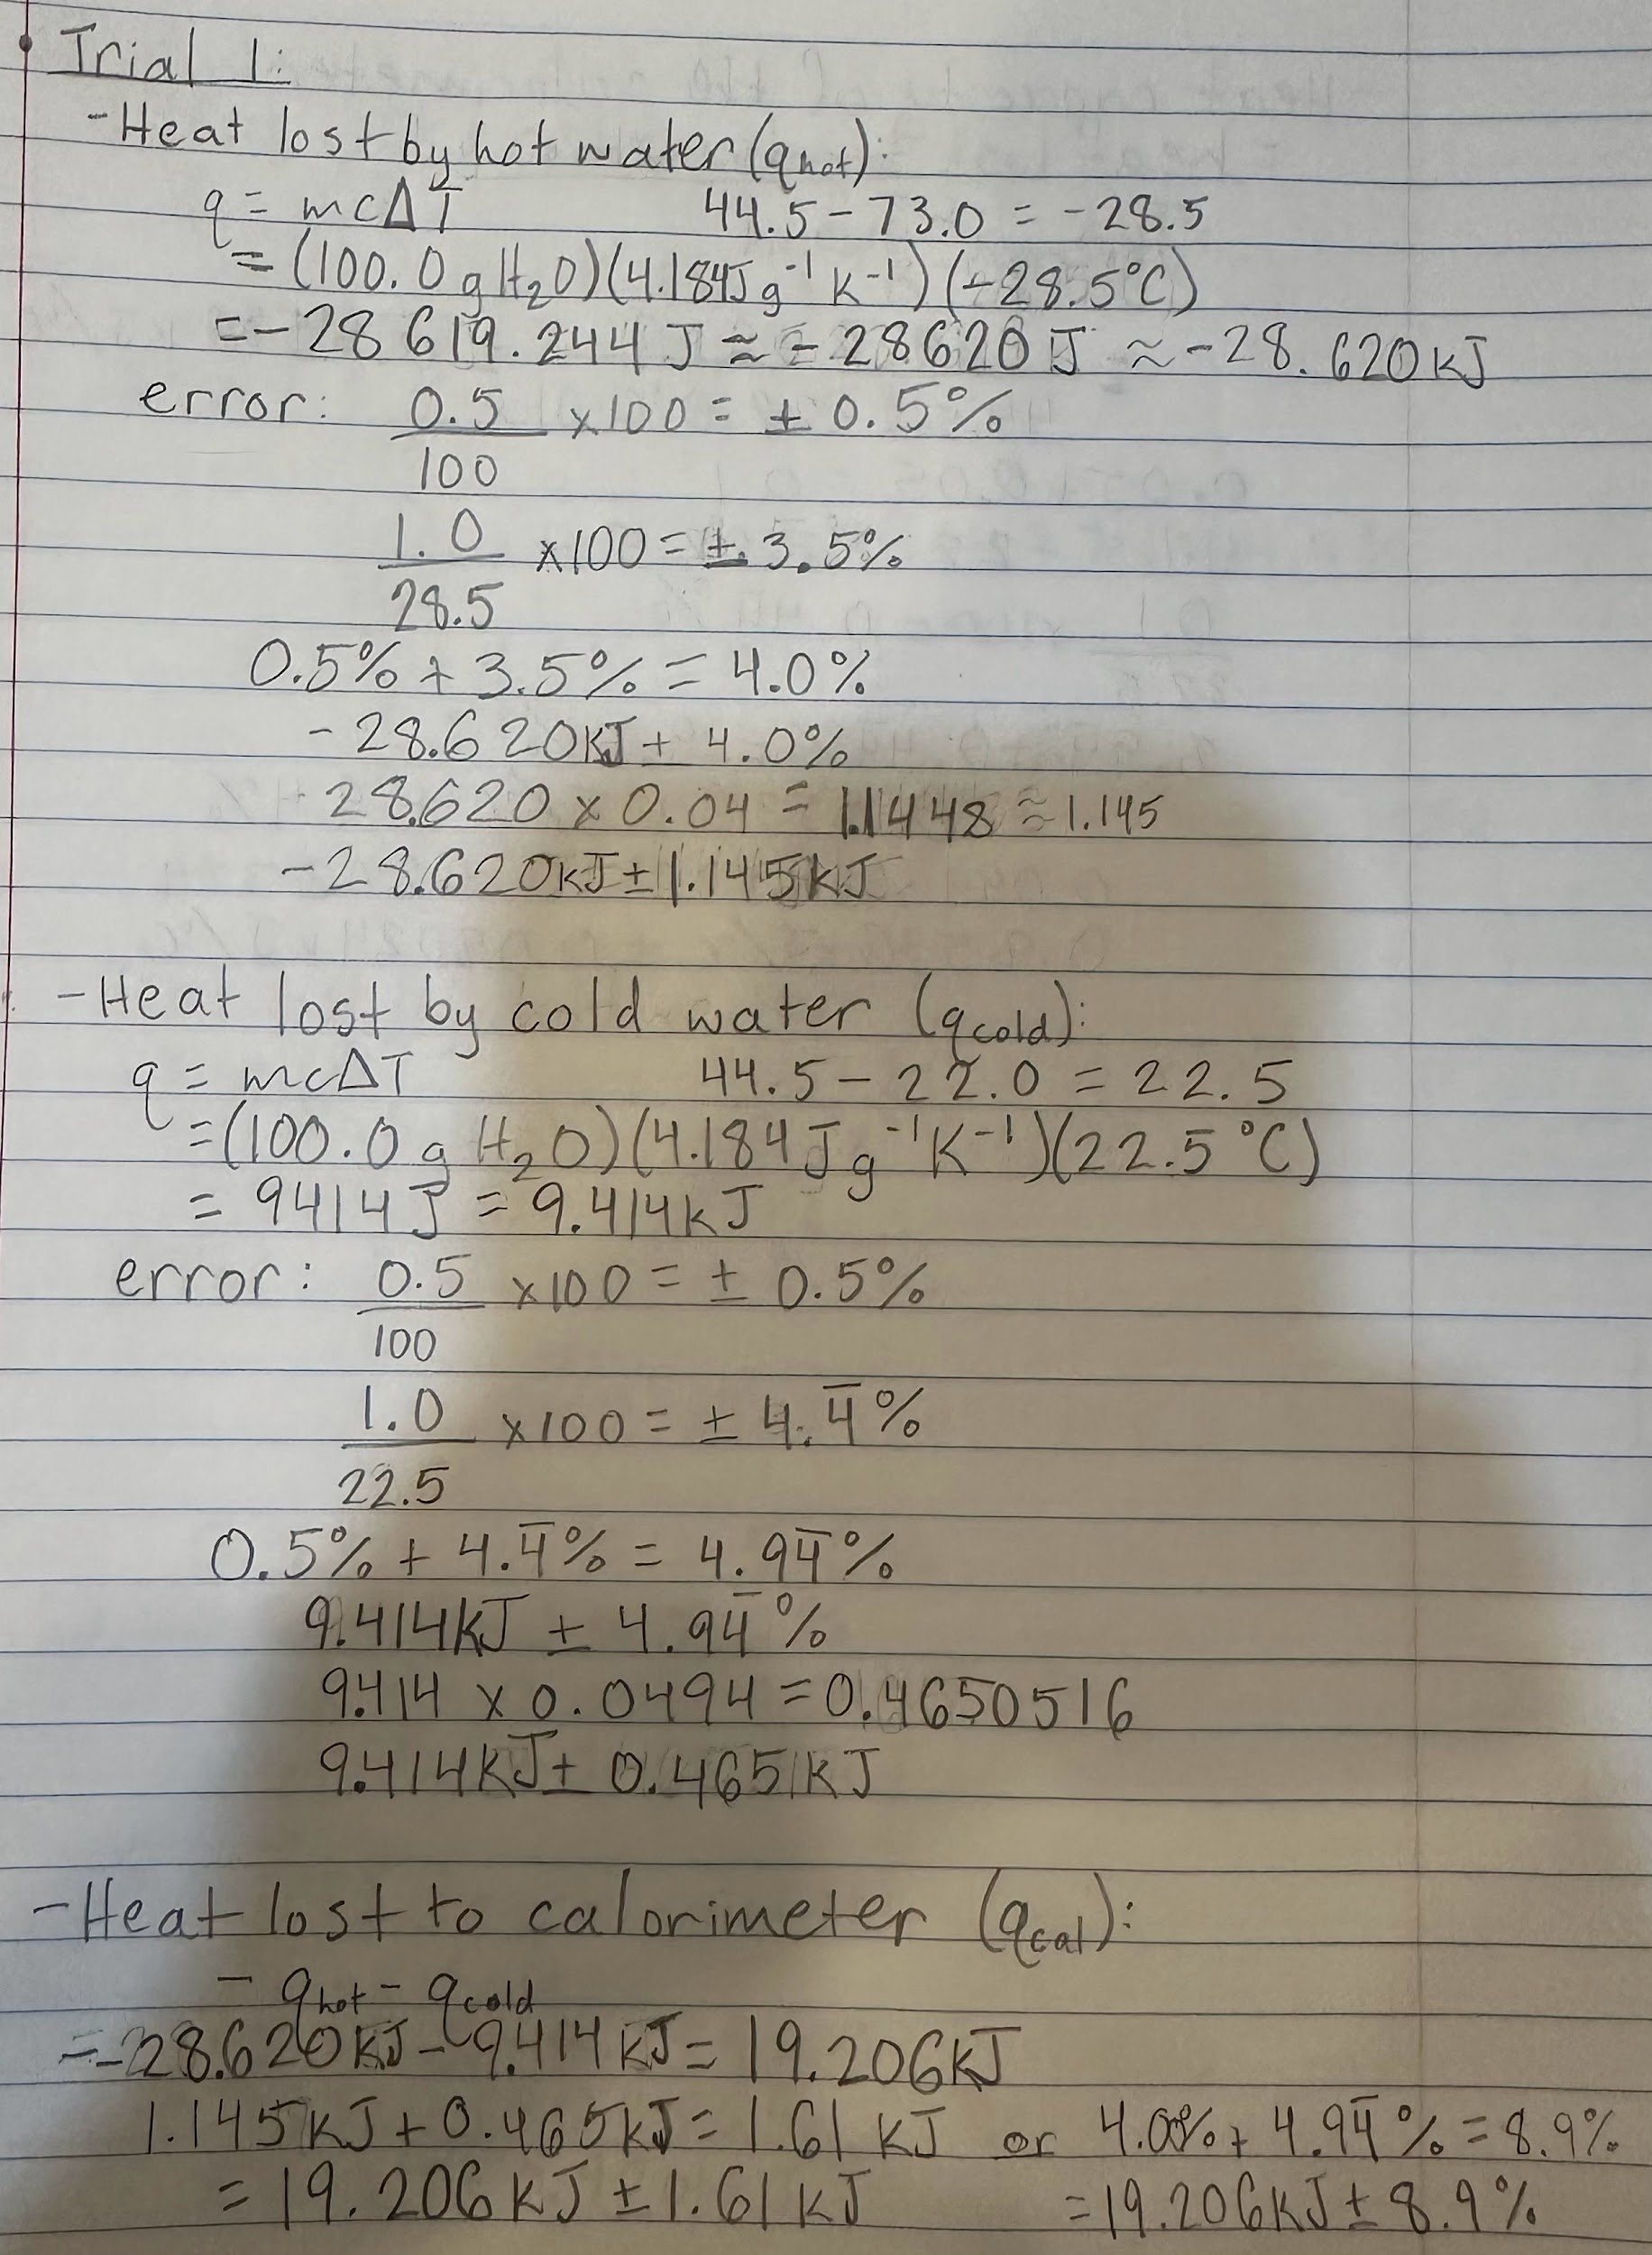 Trial 1:
- Heat lost by hot water (qhot):
q = mcΔT 44.5 - 73.0 = -28.5
= (100.0 g H₂O)(4.184J g⁻¹ K⁻¹)(-28.5°C)
= -28 619.244 J ≈ -28620 J ≈ -28.620 kJ
error: 0.5/100 ×100 = ± 0.5%
1.0/28.5 ×100 = ± 3.5%
0.5% + 3.5% = 4.0%
-28.620kJ ± 4.0%
28.620 × 0.04 = 1.1448 ≈ 1.145
-28.620kJ ± 1.145kJ
- Heat lost by cold water (qcold):
q = mcΔT 44.5 - 22.0 = 22.5
= (100.0 g H₂O)(4.184 J g⁻¹ K⁻¹)(22.5°C)
= 9414 J = 9.414kJ
error: 0.5/100 ×100 = ± 0.5%
1.0/22.5 ×100 = ± 4.4̅%
0.5% + 4.4̅% = 4.94̅%
9.414kJ ± 4.94̅%
9.414 × 0.0494 = 0.4650516
9.414kJ ± 0.465kJ
- Heat lost to calorimeter (qcal):
- qhot - qcold
= -28.620kJ - 9.414kJ = 19.206kJ
1.145kJ + 0.465kJ = 1.61 kJ or 4.0% + 4.94̅% = 8.9%
= 19.206kJ ± 1.61kJ = 19.206kJ ± 8.9%